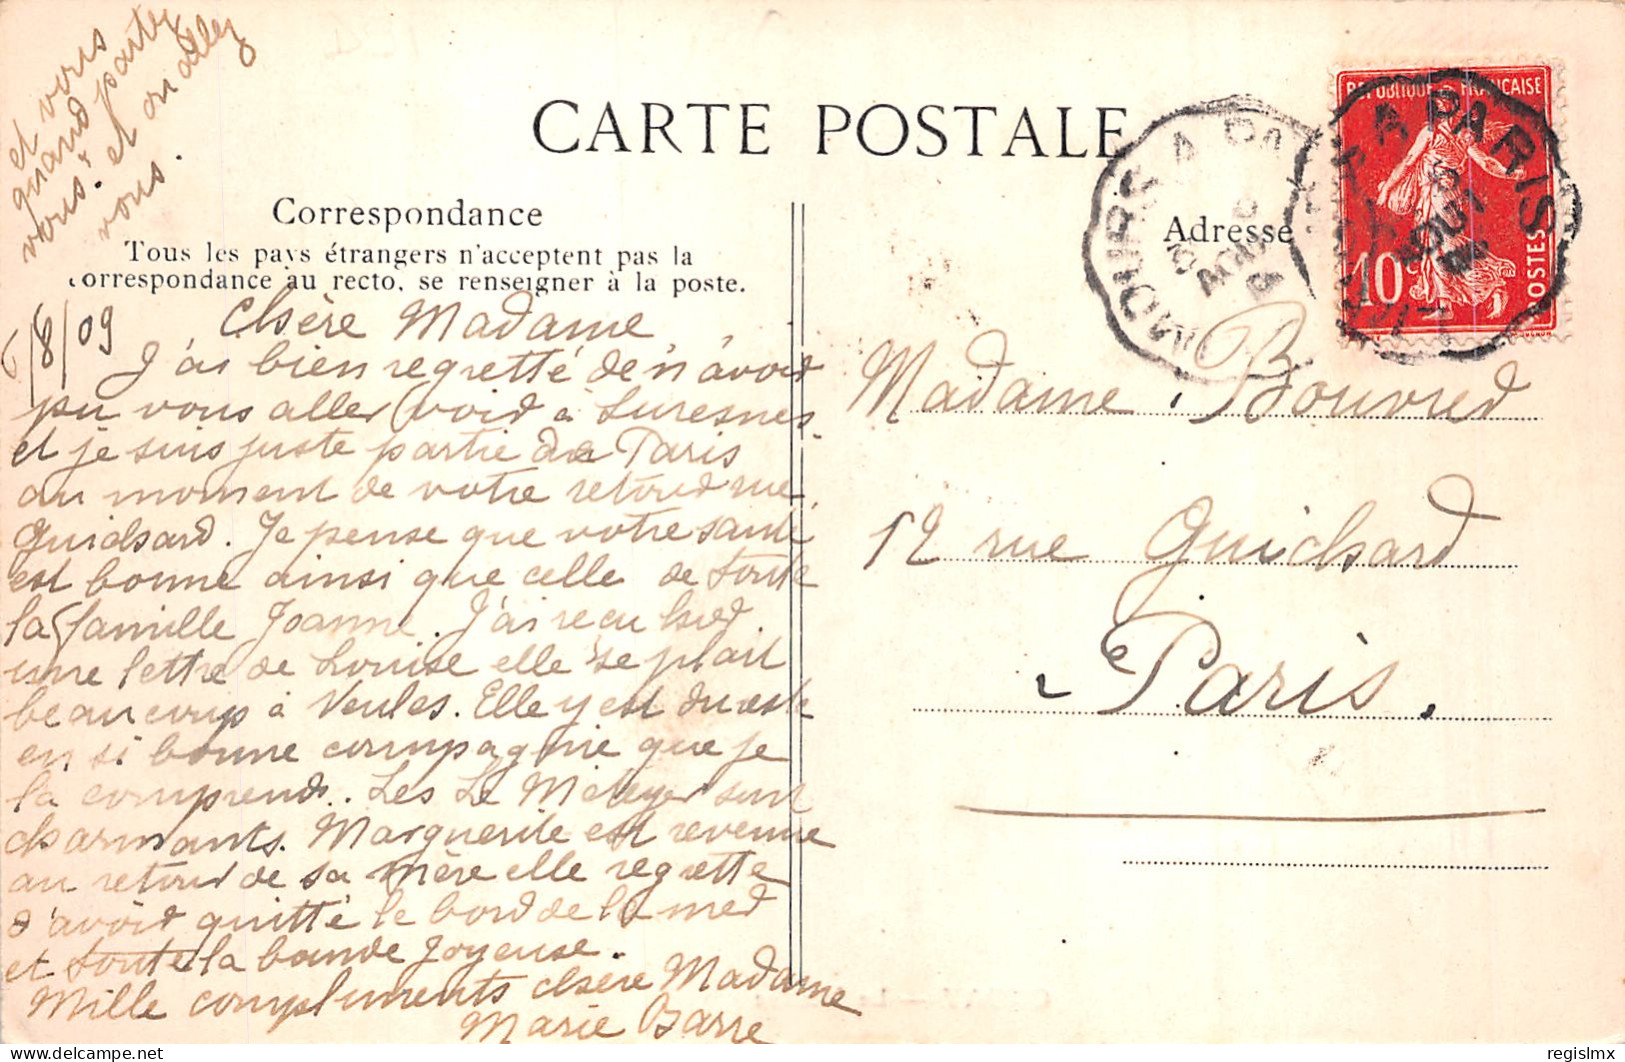 et vous
quand partez
vous. et où allez
vous.
CARTE POSTALE
Correspondance
Tous les pays étrangers n'acceptent pas la
correspondance au recto, se renseigner à la poste.
6/8/09 Chère Madame
J'ai bien regretté de n'avoir
pu vous aller voir à Suresnes.
et je suis juste partie de Paris
au moment de votre retour rue
Guichard. Je pense que votre santé
est bonne ainsi que celle de toute
la famille Joanne. J'ai reçu hier
une lettre de Louise elle se plait
beaucoup à Veules. Elle y est du reste
en si bonne compagnie que je
la comprends. Les Le Metayer sont
charmants. Marguerite est revenue
au retour de sa mère elle regrette
d'avoir quitté le bord de la mer
et toute la bande joyeuse.
Mille compliments chère Madame
Marie Barre
Adresse
REPUBLIQUE FRANÇAISE
10c
POSTES
A PARIS
AOUT
Madame Bouvier
12 rue Guichard
Paris.
regislmx
© delcampe.net